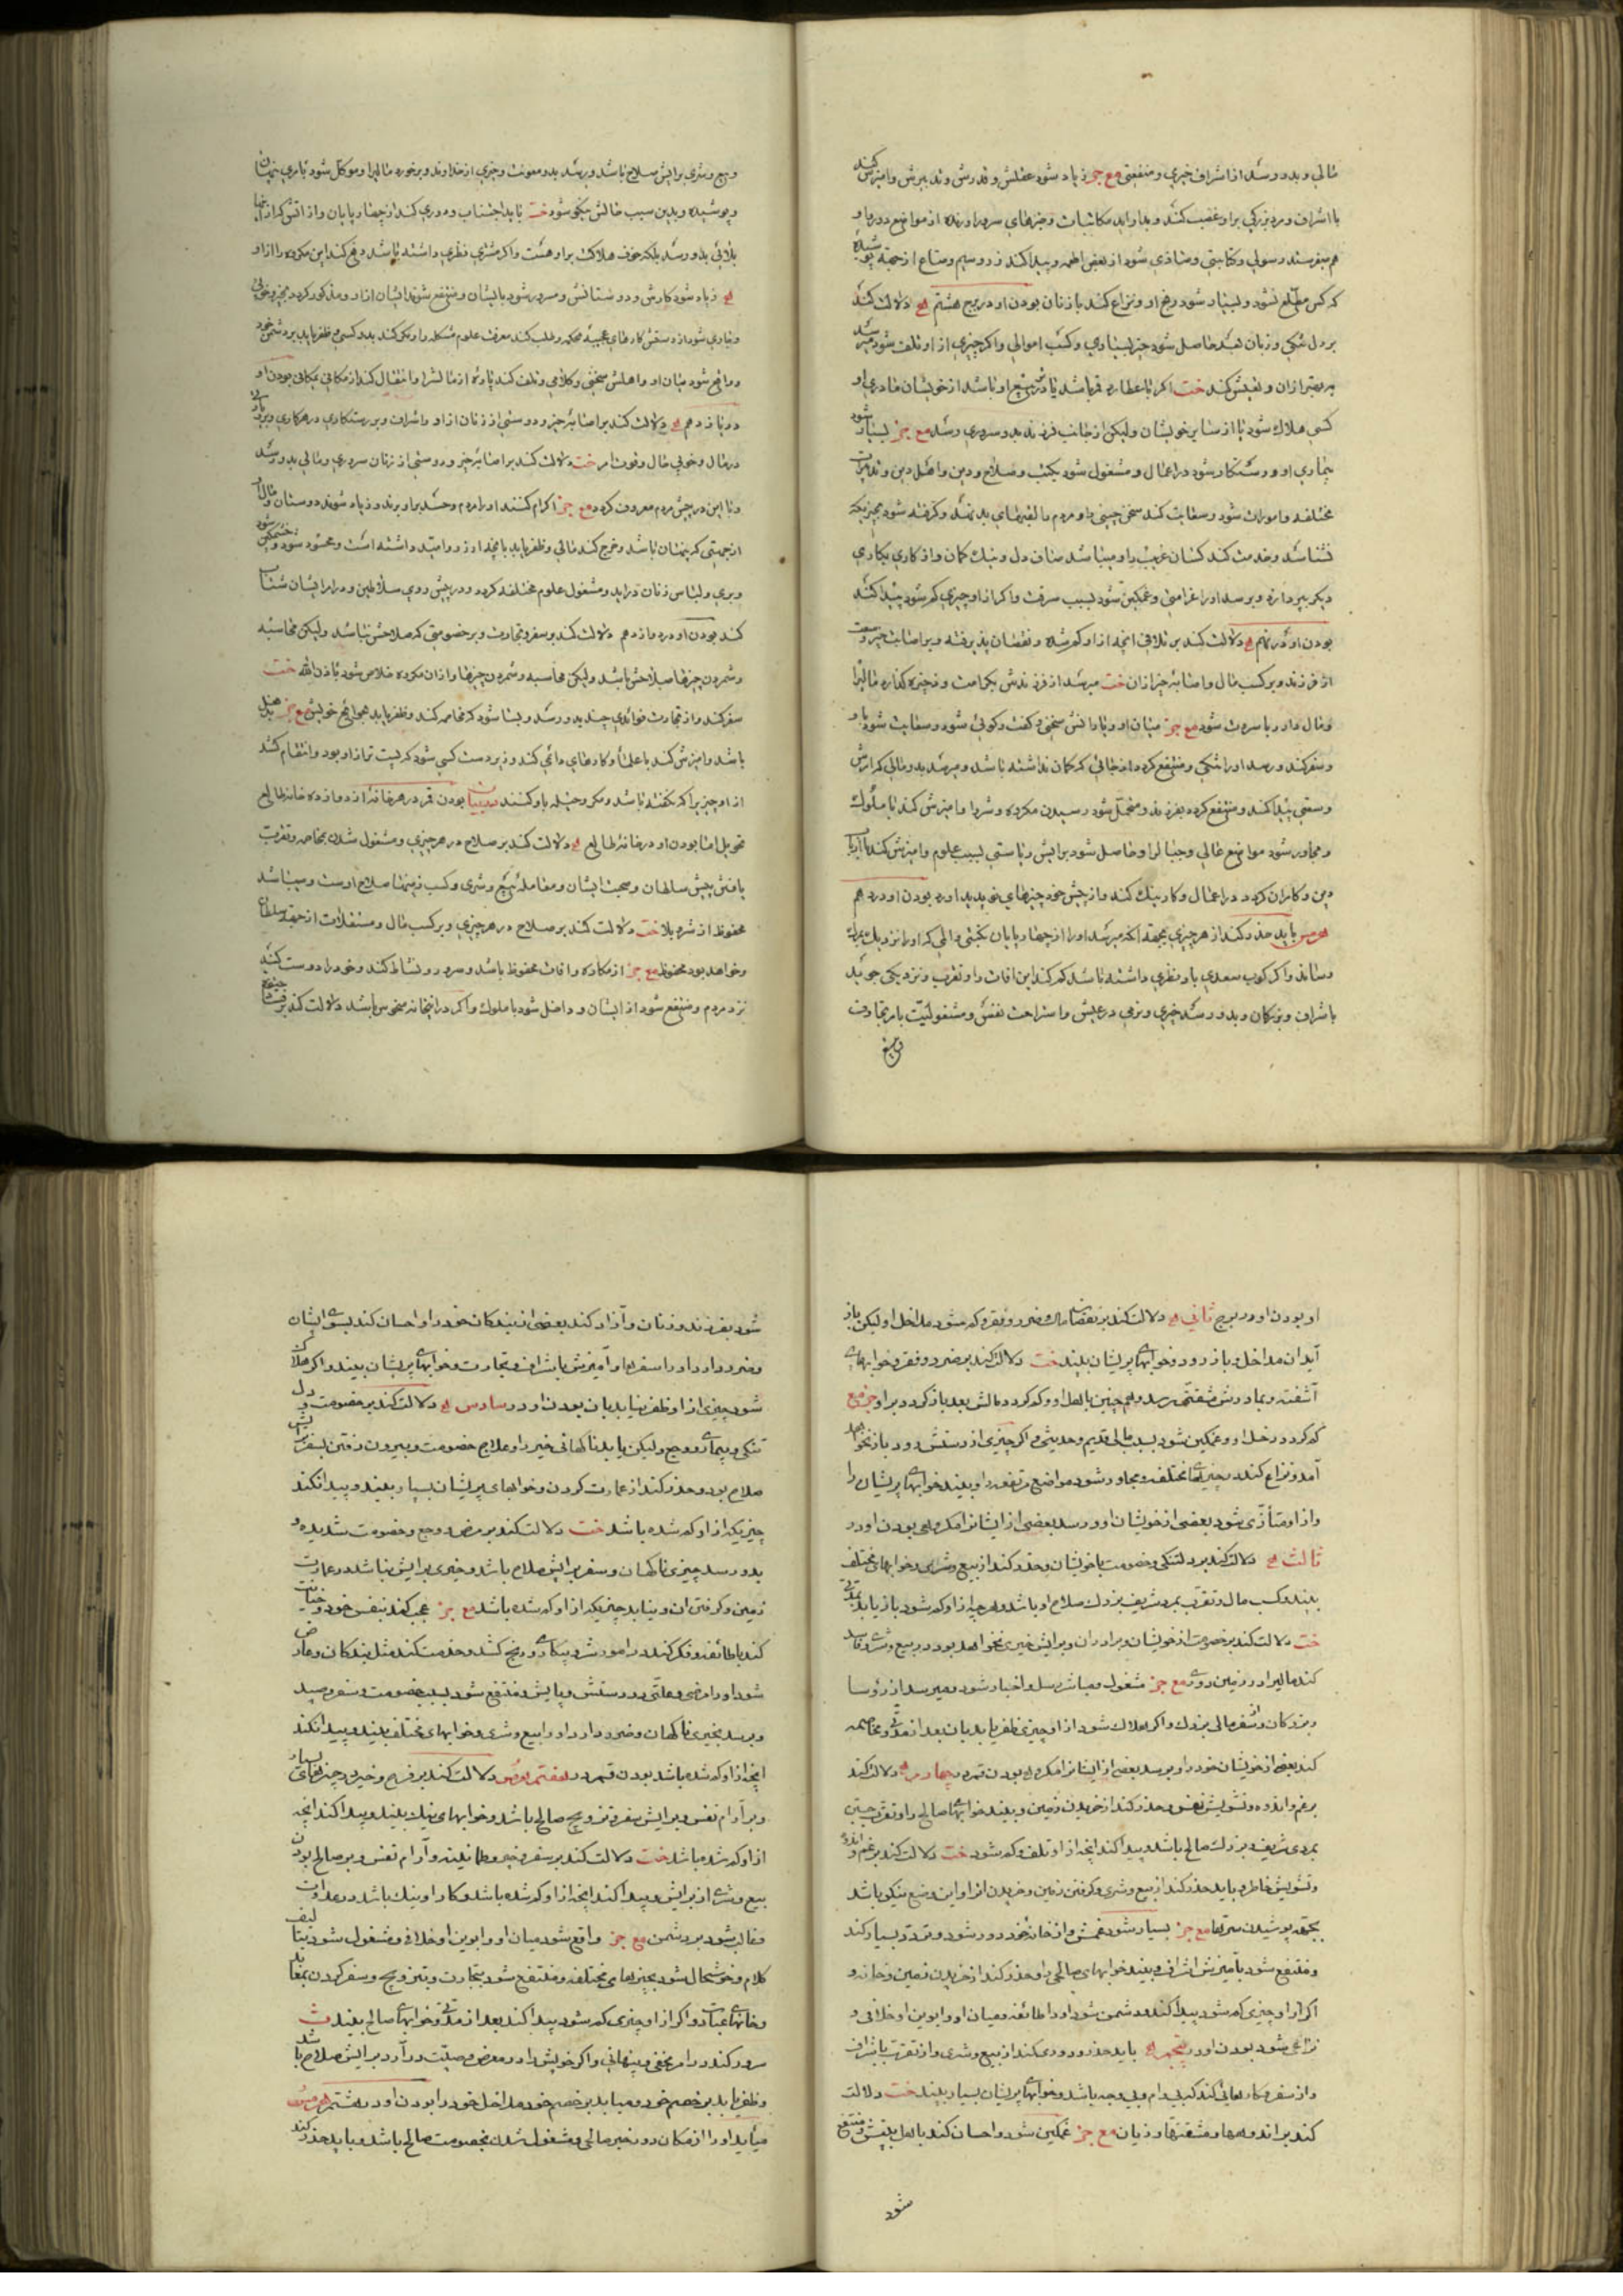 مالی و بدو رسد از اشراف خیری و منفعتی مع جز زیاد شود عقلش و قدرش و تدبیرش و امیزش کند
با اشراف و مرد بزرکی براو غضب کند و بداو اید مکاتبات و خبرهای سرور اورنده از مواضع دور و او
هم بفرستد رسولی و کتابتی و متاذی شود از بعض اطعمه و پیدا کند زر و سیم و متاع از جهة پوشیده
که کس مطلع نشود و بسیار شود رنج او و نزاع کند با زنان بودن او در برج هشتم له دلالت کند
بر دل تنکی و زبان بد حاصل شود چیز بسیاری و کسب اموالی و اکر چیزی از او تلف شود میرسد
به بهتر از ان و تفتیش کند خت اکر با عطارد قمر باشد یا در تربیع او باشد از خویشان مادری او
کسی هلاک شود یا از سایر خویشان ولیکن از جانب فرزند بدو سروری رسد مع جز بسیار شود
بیماری او و رستکار شود در اعمال و مشغول شود بکتب و صلاح و دین و اهل دین و تدبیرات
مختلفه و اموراث شود و سعایت کند سخن چینی داو مردم با لقبهای بد نهند و کرفته شود بچیزیکه
نشناسد و خدمت کند کسان غریب را و میباشد صاف دل و نیک کمان و از کاری بکاری
دیکر بپردازد و برسد او را غرامتی و غمکین شود بسبب سرقت و اکر از او چیزی کم شود پیدا کند
بودن او در نهم له دلالت کند بر تلافی انچه از او کم شده و نقصان پذیرفته و بر اصابت خیر و نعمت
از فرزند و بر کسب مال و اصابة خیر از ان خت میرسد از فرزندش بکرامت و ذخیره کذارد مالیرا
و مال دار و با سروت شود مع جز میان او و یارانش سخنی و کفت و کوئی شود و سعایت شود باو
و سفر کند و رسد او را تنکی و منتفع کردد از جائی که کمان نداشته باشد و میرسد بدو مالی که ارزش
وسعتی پیدا کند و منتفع کردد بفرزند و متحمل شود رسیدن مکروه و شر را و امیزش کند با ملوک
و مجاور شود مواضع عالی و جبال را و حاصل شود برایش ریاستی بسبب علوم و امیزش کند با ارباب
دین و کامران کردد در اعمال و کار نیک کند و از پیش خود چیزهای نو پدید اورد بودن او در دهم
هرمس باید حذر کند از هر چیزی بجهة انکه میرسد او را از چهار پایان نکبتی و المی که او را نزدیک بمرک
رساند و اکر کوب سعدی باو نظری داشته باشد کم کند این افات را و تقرب و نزدیکی جوید
باشراف و بزرکان و بدو رسد خیری و نرمی در عیش و استراحت نفس و مشغولیت بامر تجارت
و بیع
و بیع و شری برایش صلاح باشد و برسد بدو معونت و چیزی از خداوند و برخورد مالیرا و موکل شود بامری پنهان
و پوشیده و بدین سبب حالش نیکو شود خت باید اجتناب و دوری کند از چهار پایان و از اتش که از انها
بلائی بدو رسد بلکه خوف هلاکت براو هست و اکر مشتری نظری داشته باشد دفع کند این مکروه را از او
له زیاد شود کارش و دوستانش و مسرور شود بایشان و منتفع شوند ایشان از او و مذکور کردد بخیر و خوبی
و جاری شود از دستش کارهای عجیبة محکمه و طلب کند معرفت علوم مشکله را و نیکی کند بدو کسی و ظفر یابد بر دشمن خود
و واقع شود میان او و اهلش سخنی و کلامی و تلف کند پارۀ از مالشرا و انتقال کند از مکانی بمکانی بودن او
در یازدهم له دلالت کند بر اصابة خیر و دوستی از زنان از او و اشراف و بر رستکاری در هر کاری و بر زیادتی
در مال و خوبی حال و قوت امر خت دلالت کند بر اصابة خیر و دوستی از زنان سروری و مالی بدو رسد
و با این در پیش مردم معروف کردد مع جز اکرام کنند او را مردم و حسد براو برند و زیاد شوند دوستان و مال
از جهتی که پنهان باشد و خرج کند مالی و ظفر یابد بانچه ارزو و امید داشته است و محسود شود و خشمکین شود
و بزی و لباس زنان درآید و مشغول علوم مختلفه کردد و در پیش روی سلاطین و در برابر ایشان شتاب
کند بودن او در دوازدهم دلالت کند بر سفر و تجارت و بر خصومتی که صلاحش نباشد ولیکن محاسبه
و شمردن چیزها صلاحش باشد ولیکن محاسبه و شمردن چیزها و از ان مکروه خلاص شود باذن الله خت
سفر کند و از تجارت فوائدی چند بدو رسد و بسا شود که مخاصمه کند و ظفر یابد بحوائج خویش مع جز
باشد و امیزش کند با علما و کارهای دائمی کند و زیر دست کسی شود که پست تر از او بود و انتقام کشد
از او چیزیرا که نکفته باشد و مکر و حیله باو کنند بودن قمر در هر خانة از دوازده خانه طالع
تحویل اما بودن او در خانة طالع له دلالت کند بر صلاح در هر چیزی و مشغول شدن بمخاصمه و تقرب
یافتن پیش سلطان و صحبت ایشان و معامله و بیع و شری و کسب زمینها صلاح اوست و میباشد
محفوظ از شر و بلا خت دلالت کند بر صلاح در هر چیزی و بر کسب مال و مستغلات از جهة سلطان
و خواهد بود محفوظ مع جز از مکاره و افات محفوظ باشد و سرور و نشاط کند و خود را دوست کند
نزد مردم و منتفع شود از ایشان و داخل شود با ملوک و اکر در انجا نه منحوس باشد دلالت کند بر
او بودن او در برج ثانی له دلالت کند بر نقصان مال و ضرر و فقر و کم شود مداخل او ولیکن باز
آید ان مداخل و باز رود و خوابهای پریشان بیند خت دلالت کند بر ضرر و فقر و خوابهای
آشفته و بمادرش مشقتی رسد و هم چنین باهل او و کم کردد مالش بعد باز کردد براو جز مع
کم کردد دخل او و غمکین شود بسبب مالی قدیم و حدیثی و اکر چیزی از دستش رود باز نخواهد
آمد و نزاع کند در چیزهای مختلف و مجاور شود مواضع مرتفعه را و بیند خوابهای پریشان را
و از او متأذی شود بعضی از خویشان او و رسد بعضی از ایشانرا مکروهی بودن او در
ثالث له دلالت کند بر دلتنکی و خصومت با خویشان و حذر کند از بیع و شری و خوابهای مختلف
بیند و کسب مال و تقرب بمرد شریف بزرک صلاح او باشد و هر چه از او کم شود باز یابد بمدتی
خت دلالت کند بر خصومت از خویشان و برادران و برایش خیری نخواهد بود در بیع و شری و فاسد
کند مالیرا در زمین روی مع جز مشغول و مباشر رسل و اخبار شود و میرسد از رؤسا
و بزرکان و اشراف مالی بزرک و اکر هلاک شود از او چیزی ظفر یابد بان بعد از مدتی و مخاصمه
کند بعضی از خویشان خود را و برسد بعضی از ایشانرا مکروهی بودن قمر در چهارم له دلالت کند
بر غم و اندوه و تشویش نفس و حذر کند از خریدن زمین و بیند خوابهای صالح را و تقرب جستن
بمردی شریف و بزرک صالح باشد و پیدا کند انچه از او تلف و کم شود خت دلالت کند بر غم و اندوه
و تشویش خاطر و باید حذر کند از بیع و شری و کرفتن زمین و خریدن انرا و این وضع نیکو باشد
بجهة پوشیدن سرّها مع جز بسیار شود غمش و از خانه خود دور شود و تردد بسیار کند
و منتفع شود بآمیزش اشراف و بیند خوابهای صالحی را و حذر کند از خریدن زمین و خانه و
اکر از او چیزی کم شود پیدا کند و دشمن شود او را طائفه و میان او و ابوین او خلافی و
نزاعی شود بودن او در پنجم له باید حذر و دوری کند از بیع و شری و از تقرب باشراف
و از سفر و کارهائی کند که بی وام و بی وجه باشد و خوابهای پریشان بسیار بیند خت دلالت
کند بر اندوهها و مشقتها و زیان مع جز غمکین شود و احسان کند باهل بیتش و منتفع
شود
شود بفرزند و زنان و آزاد کند بعضی از بندکان خود را و احسان کند بسوی ایشان
و ضرر دارد او را سفرها و آمیزش باشراف و تجارت و خوابهای پریشان بیند و اکر هلاک
شود چیزی از او ظفر نیابد بان بودن او در سادس له دلالت کند بر خصومت و دل
تنکی و بیماری و وجع ولیکن یابد ناکهانی خیر را و علاج خصومت و بیرون رفتن بسفر برایش
صلاح بود و حذر کند از عمارت کردن و خوابهای پریشان بسیار بیند و پیدا نکند
چیزیکه از او کم شده باشد خت دلالت کند بر مرض و وجع و خصومت شدیده و
بدو رسد چیزی ناکهان و سفر برایش صلاح باشد و خیری برایش نباشد در عمارت
زمین و کرفتن ان و نیابد چیزیکه از او کم شده باشد مع جز عجب کند بنفس خود و خیانت
کند با طائفه و فکر کند در امور شر و بیکاری و رنج کشد و خدمت کند مثل بندکان و عارض
شود او را مرضی و علتی در دستش و پایش و منتفع شود بسبب خصومت و سفر و صید
و برسد بخیری ناکهان و ضرر دارد او را بیع و شری و خوابهای مختلف بیند و پیدا نکند
انچه از او کم شده باشد بودن قمر در هفتم هرمس دلالت کند بر فرح و خیر و چیزهای بسیار
و بر آرام نفس و برایش سفر و تزویج صالح باشد و خوابهای نیک بیند و پیدا کند انچه
از او کم شده باشد خت دلالت کند بر سفر و خیر و طمانینه و آرام نفس و بر صالح بودن
بیع و شری از برایش و پیدا کند انچه از او کم شده باشد و کار او نیک باشد در عداوت
و غالب شود بر دشمن مع جز واقع شود میان او و ابوین او خلافی و مشغول شود بتالیف
کلام و خوشحال شود بچیزهای مختلفه و منتفع شود بتجارت و تزویج و سفر کردن بمعابد
و خانهای عبادت و اکر از او چیزی کم شود پیدا کند بعد از مدتی و خوابهای صالح بیند
سرور کند در امر مخفی و پنهانی و اکر خویش را در معرض وصیت در آرد برایش صلاح باشد
و ظفر یابد بر خصم خود و میابد بر خصم خود مداخل خود را بودن او در هشتم هرمس
میآید او را از مکان دور خبر صالحی و مشغول شدن بخصومت صالح باشد و باید حذر کند